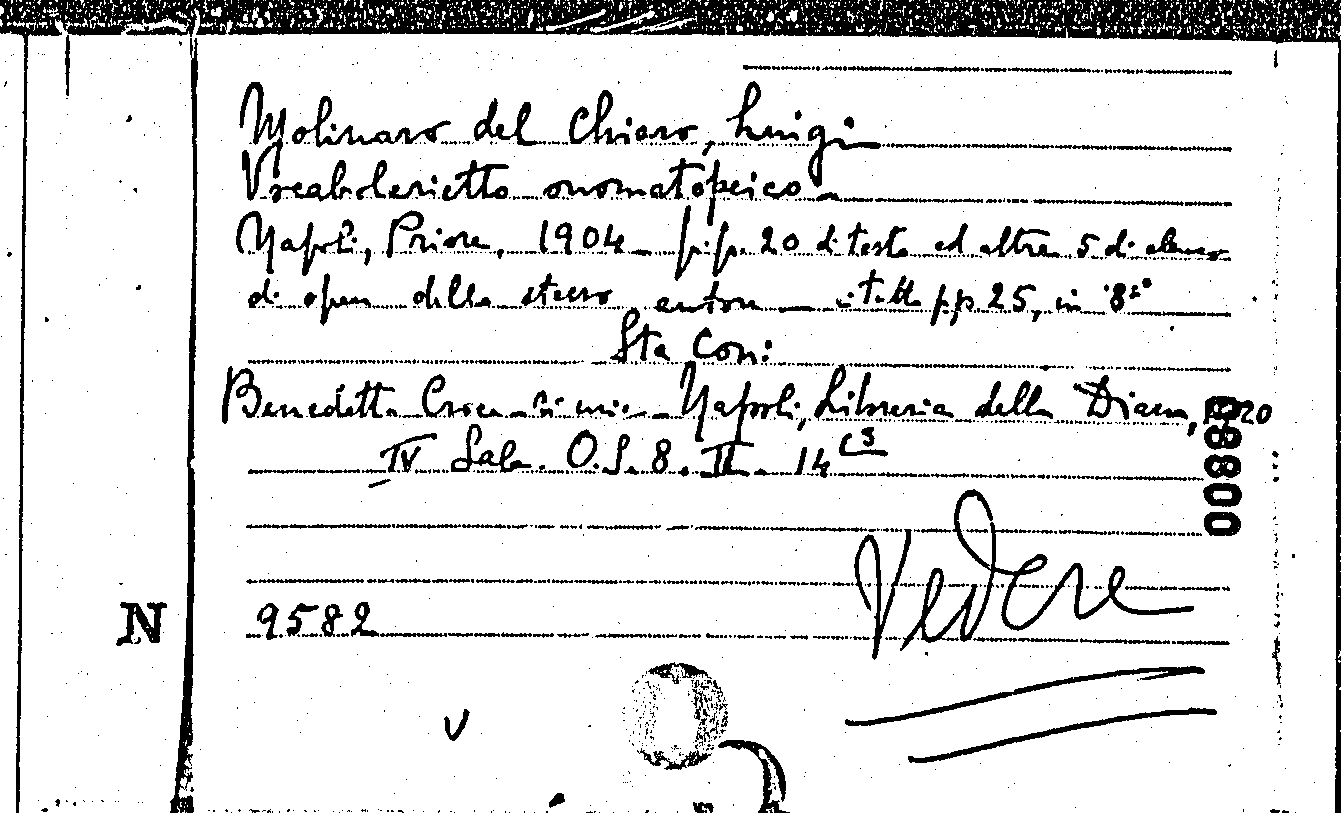 Molinaro del Chiaro, Luigi
Vocabolarietto onomatopeico
Napoli, Priore, 1904 - p.p. 20 di testo ed altre 5 di elenco
di opere dello stesso autore - in tutto pp 25, in 8°
Sta con:
Benedetto Croce - Napoli, Libreria della Diana, 1920
IV Sala. O.S. 8. II. 14 c3
00880
Vedere
N 9582